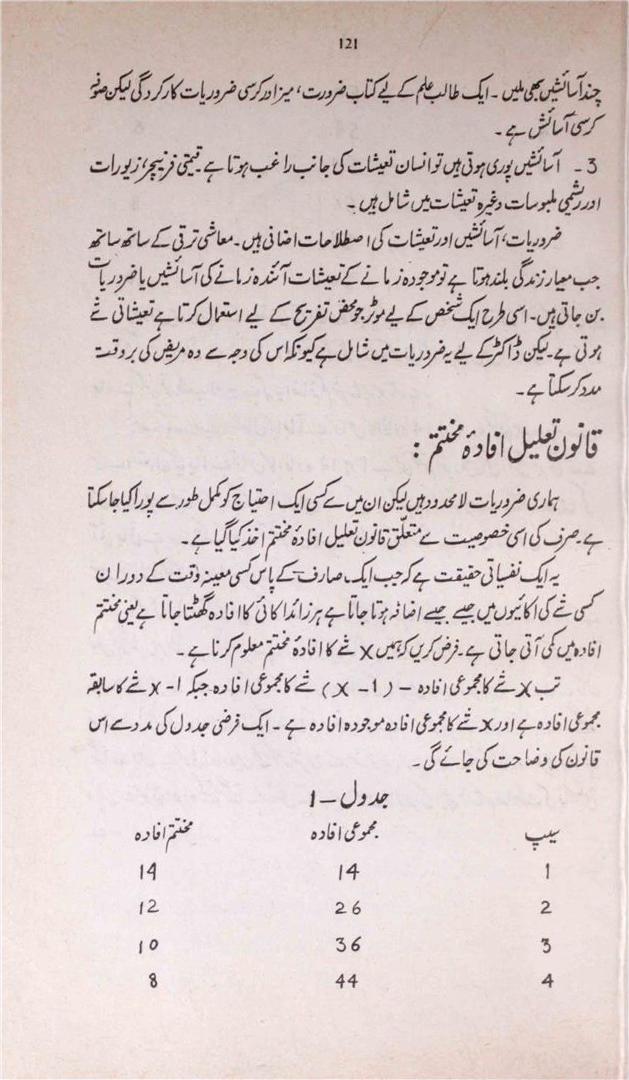 121
چند آسائشیں بھی ملیں ۔ ایک طالب علم کے لیے کتاب ضرورت، میز اور کرسی ضروریات کارکردگی لیکن صوفہ
کرسی آسائش ہے ۔
3 ۔ آسائشیں پوری ہوتی ہیں تو انسان تعیشات کی جانب راغب ہوتا ہے ۔ قیمتی فرنیچر، زیورات
اور ریشمی ملبوسات وغیرہ تعیشات میں شامل ہیں ۔
ضروریات، آسائشیں اور تعیشات کی اصطلاحات اضافی ہیں ۔ معاشی ترقی کے ساتھ ساتھ
جب معیار زندگی بلند ہوتا ہے تو موجودہ زمانے کے تعیشات آئندہ زمانے کی آسائشیں یا ضروریات
بن جاتی ہیں ۔ اسی طرح ایک شخص کے لیے موٹر جو محض تفریح کے لیے استعمال کرتا ہے تعیشاتی شے
ہوتی ہے ۔ لیکن ڈاکٹر کے لیے یہ ضروریات میں شامل ہے کیونکہ اس کی وجہ سے وہ مریض کی بروقت
مدد کر سکتا ہے ۔
قانون تعلیل افادۂ مختتم :
ہماری ضروریات لامحدود ہیں لیکن ان میں سے کسی ایک احتیاج کو مکمل طور سے پورا کیا جا سکتا
ہے ۔ صرف کی اسی خصوصیت سے متعلق قانون تعلیل افادۂ مختتم اخذ کیا گیا ہے ۔
یہ ایک نفسیاتی حقیقت ہے کہ جب ایک صارف کے پاس کسی معینہ وقت کے دوران
کسی شے کی اکائیوں میں جیسے جیسے اضافہ ہوتا جاتا ہے ہر زائد اکائی کا افادہ گھٹتا جاتا ہے یعنی مختتم
افادہ میں کمی آتی جاتی ہے ۔ فرض کریں کہ ہمیں X شے کا افادۂ مختتم معلوم کرنا ہے ۔
تب X شے کا مجموعی افادہ – (X – 1) شے کا مجموعی افادہ جبکہ X – 1 شے کا سابقہ
مجموعی افادہ ہے اور X شے کا مجموعی افادہ موجودہ افادہ ہے ۔ ایک فرضی جدول کی مدد سے اس
قانون کی وضاحت کی جائے گی ۔
جدول – 1
سیب مجموعی افادہ مختتم افادہ
1 14 14
2 26 12
3 36 10
4 44 8